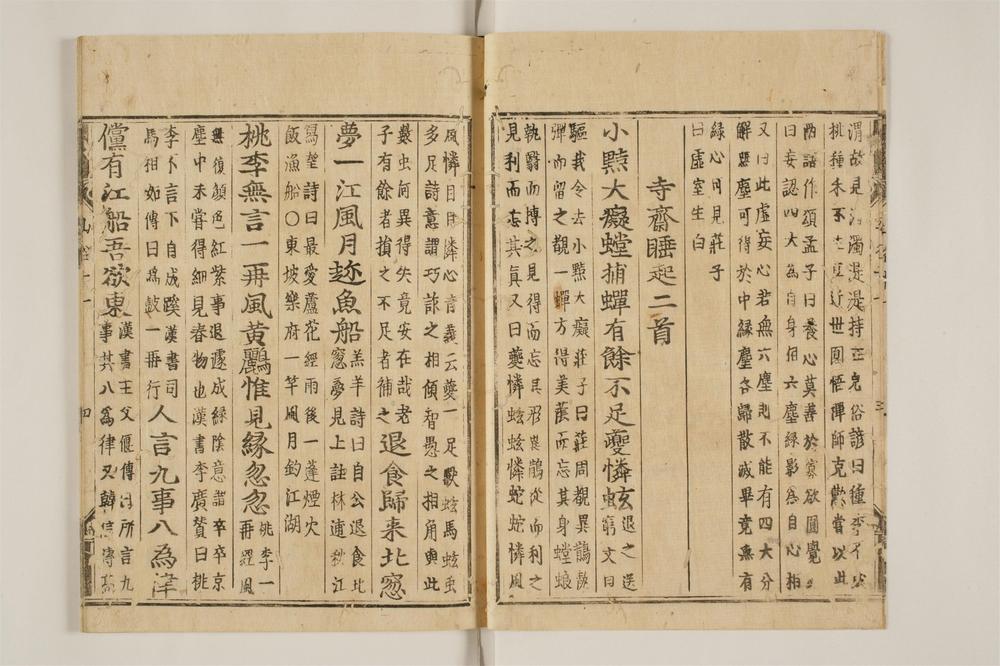 渭故見
濁湜湜持正皃俗諺曰種李不
桃種禾不
豆近世圓悟禪師克勤嘗以此
兩語作頌孟子曰養心莫善於寡欲圓覺
曰妄認四大為自身相六塵緑影為自心相
又曰此虛妄心若無六塵則不能有四大分
解無塵可得於中縁塵各歸散滅畢竟無有
緑心可見莊子
曰虛室生白
寺齋睡起二首
小黠大癡螳捕蟬有餘不足夔憐蚿
退之送
窮文曰
驅我令去小黠大癡莊子曰莊周覩異鵲
蟬而留之覩一蟬方得美蔭而忘其身螳蜋
執翳而搏之見得而忘其形異鵲從而利之
見利而忘其真又曰夔憐蚿蚿憐蛇蛇憐風
風憐目目憐心音義云夔一足獸蚿馬蚿虫
多足詩意謂巧詐之相傾智愚之相角與此
數虫何異得失竟安在哉老
子有餘者損之不足者補之
退食歸来北窓
夢一江風月趂魚船
窓夢見上註林逋秋江
羔羊詩曰自公退食北
寫望詩曰最愛蘆花經雨後一蓬煙火
飯漁船〇東坡樂府一竿風月釣江湖
桃李無言一再風黄鸝惟見緑忽忽
桃李一
再經風
無復顔色紅紫事退遂成緑隂意謂卒卒京
塵中未嘗得細見春物也漢書李廣賛曰桃
李不言下自成蹊漢書司
馬相如傳曰為鼓一再行
人言九事八為律
儻有江船吾欲東
漢書王父偃傳曰所言九
事其八為律又韓信傳